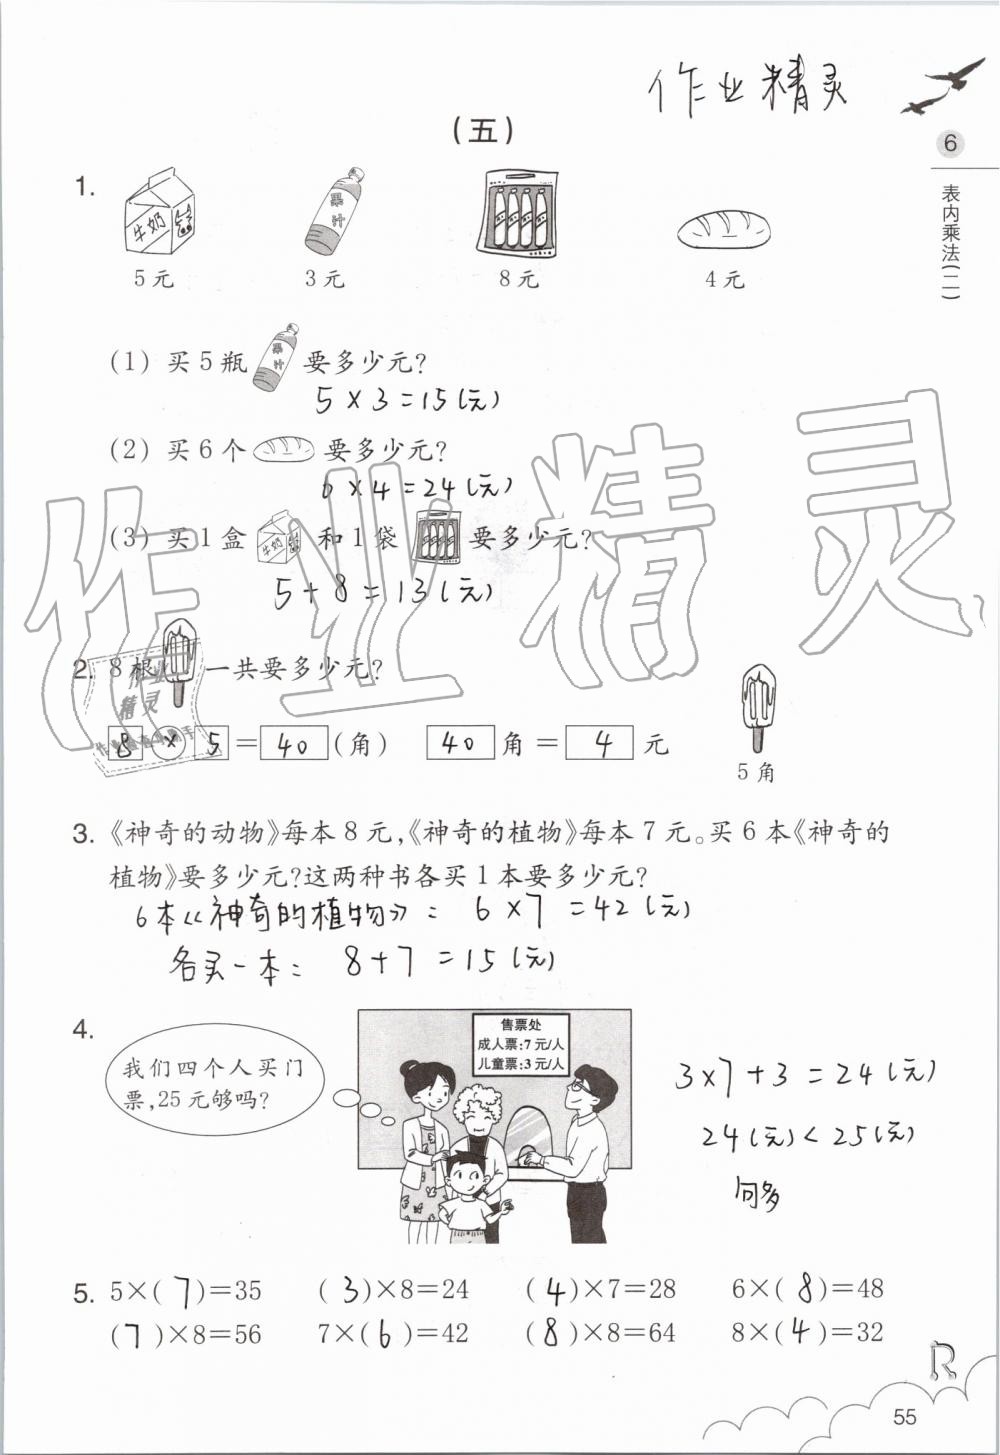 作业精灵
（五）
6
表内乘法（二）
1.
牛奶
果汁
5元 3元 8元 4元
(1) 买5瓶 果汁 要多少元?
5×3=15(元)
(2) 买6个 要多少元?
6×4=24(元)
(3) 买1盒 牛奶 和1袋 要多少元?
5+8=13(元)
作业精灵
2. 8根 一共要多少元?
作业
精灵
8 × 5 = 40 (角) 40 角 = 4 元
5角
3.《神奇的动物》每本8元,《神奇的植物》每本7元。买6本《神奇的
植物》要多少元?这两种书各买1本要多少元?
6本《神奇的植物》: 6×7=42(元)
各买一本: 8+7=15(元)
4.
我们四个人买门
票,25元够吗?
售票处
成人票:7元/人
儿童票:3元/人
3×7+3=24(元)
24(元)<25(元)
5. 5×(7)=35 (3)×8=24 (4)×7=28 6×(8)=48
(7)×8=56 7×(6)=42 (8)×8=64 8×(4)=32
R
55